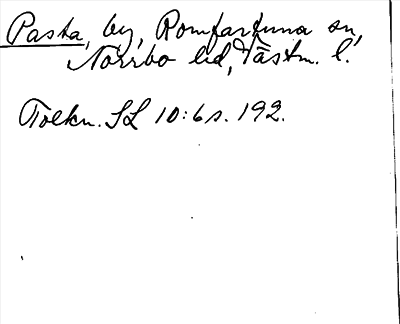 Pasta, by, Romfartuna sn,
Norrbo hd, Västm. l.
Tolkn. SL 10:6 s. 192.